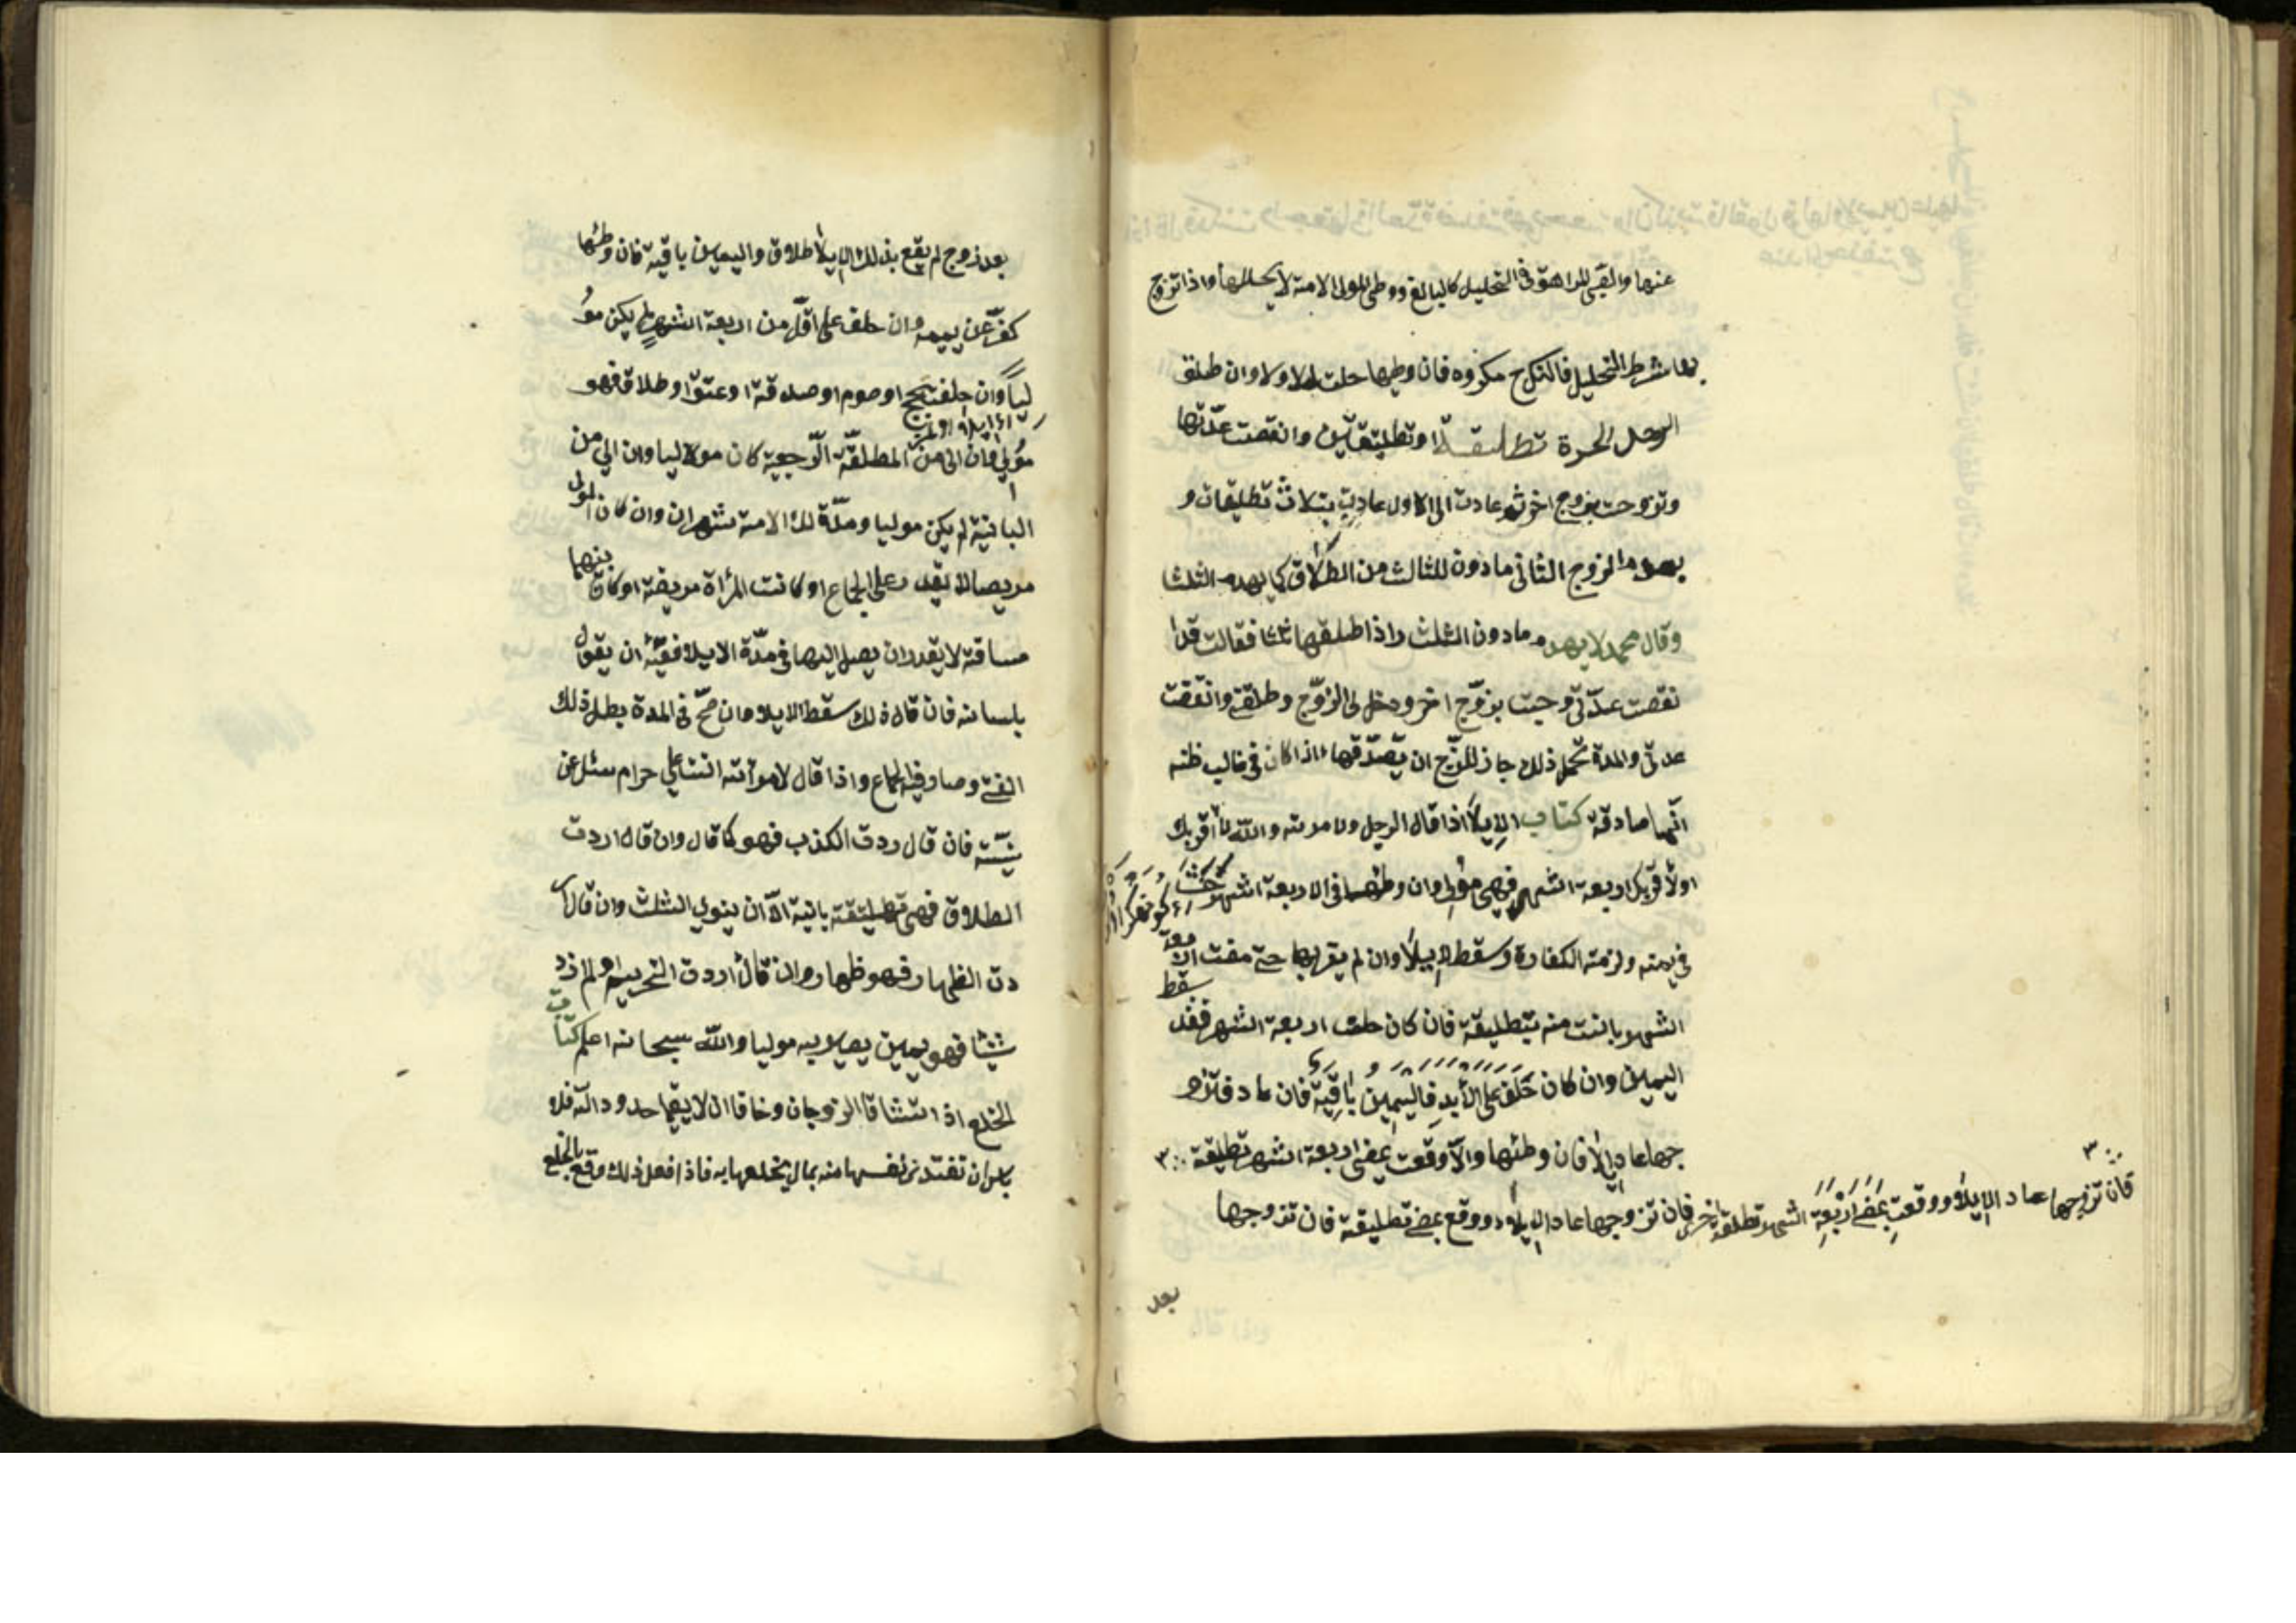 عنها والصبي المراهق في التحليل كالبالغ ووطئ المولى الامة لا يحللها واذا تزوج
بها بشرط التحليل فالنكاح مكروه فان وطيها حلت للاول وان طلق
الرجل الحرة تطليقة او تطليقتين وانقصت عدّتها
وتزوجت بزوج اخر ثم عادت الى الاول عادت بثلاث تطليقات و
يهدم الزوج الثاني مادون للثالث من الطلاق كما يهدم الثلثا
وقال محمد لا يهدم مادون الثلث واذا طلقها ثلثا فقالت قد ا
نقصت عدّتي وجت بزوّج اخر ودخل لى الزوّج وطلقني وانقضت
عدتي والمدة تحمل ذلك جاز للزّوج ان يصّدقها اذا كان في غالب ظنه
انّها صادقة كتاب الايلاء اذا قال الرجل لامرته والله لا اقربك
اولا اقربك اربعة اشهر فهى مؤلٍ وان وطئها في الاربعة اشهر حنث
في يمنه ولزمته الكفارة وسقط الايلاء وان لم يقربها حتى مضت الاربعة
اشهر بانت منه بتطليقة فان كان حلف اربعة اشهر فقد سقط
اليمين وان كان حَلَف على الأبدِ فاليَمِينُ بَاقِيَة فان عاد فتزو
جها عاد الايلاء فان وطئها والاّ وقعت بمضي اربعة اشهر تطليقة ۳
فان تزوجها عاد الايلاء ووقع بمضي تطليقة فان تزوجها
۳
فان تزوجها عاد الايلاء ووقعت بمضي اربعة اشهر تطلقة اخرى
بعد
بعد زوج لم يقع بذلك الايلاء طلاق واليمين باقية فان وطئها
كفّر عن يمينه وان حلف على اقلّ من اربعة اشهر لم يكن مؤ
لياً وان حلف بحج او صوم او صدقة او عتق او طلاق فهو
مُولٍ وان الى من المطلقّة الرّجعية كان موليا وان الى من
البانية لم يكن موليا ومدّة الامة شهران وان كان المولى
مريصا لا يقدر على الجماع او كانت المرأة مريضة او كان بينهما
مسافة لا يقدر ان يصل اليها في مدّة الايلا ففيّه ان يقول
بلسانه فان قال ذلك سقط الايلا وان صحّ في المدة بطل ذلك
الفئ وصار فيه الجماع واذا قال لامرأته انت على حرام سئل عن
نيّته فان قال ردت الكذب فهو كما قال وان قال اردت
الطلاق فهى تطليقة بانية الاّ ان ينوي الثلث وان قال ار
دت الظهار فهو ظهار وان قال اردت التحريم او لم ارد
شيئا فهو يمين يصير به موليا والله سبحانه اعلم كتاب
الخلع اذا تشاقا الزوجان وخافا ان لا يقيما حدود الله فلا
باس ان تفتدى نفسها منه بمال يخلعها به فاذا فعل ذلك وقع بالخلع